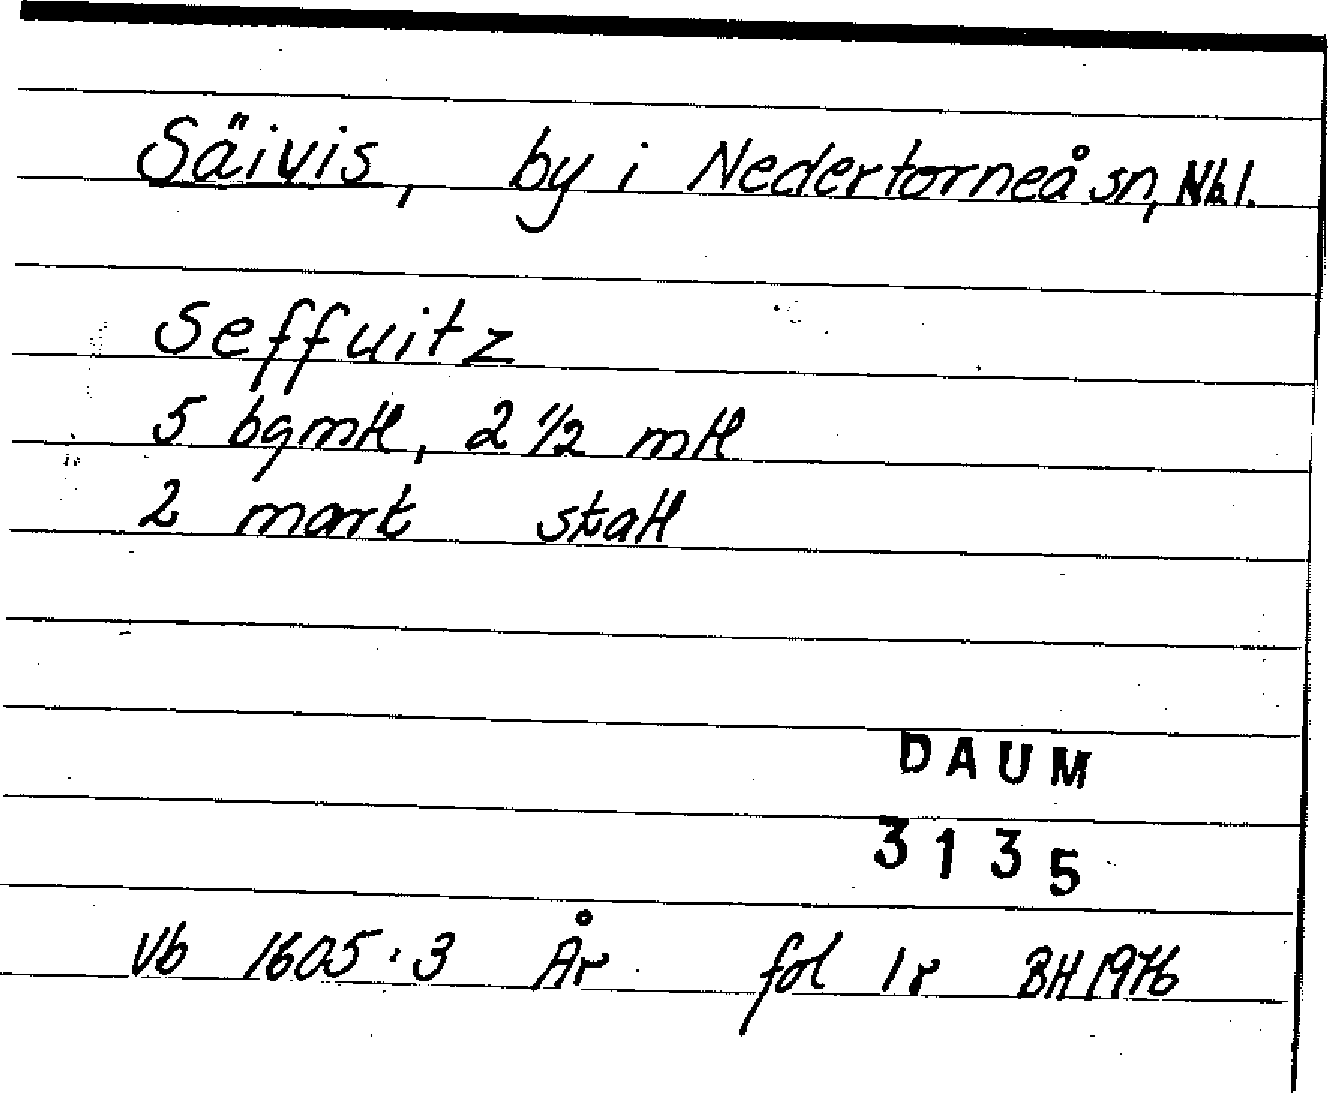 Säivis, by i Nedertorneå sn, Nbl.
Seffuitz
5 bgmtl, 2 1/2 mtl
2 mark skatt
DAUM
3135
Vb 1605:3 År fol 1r BH 1976